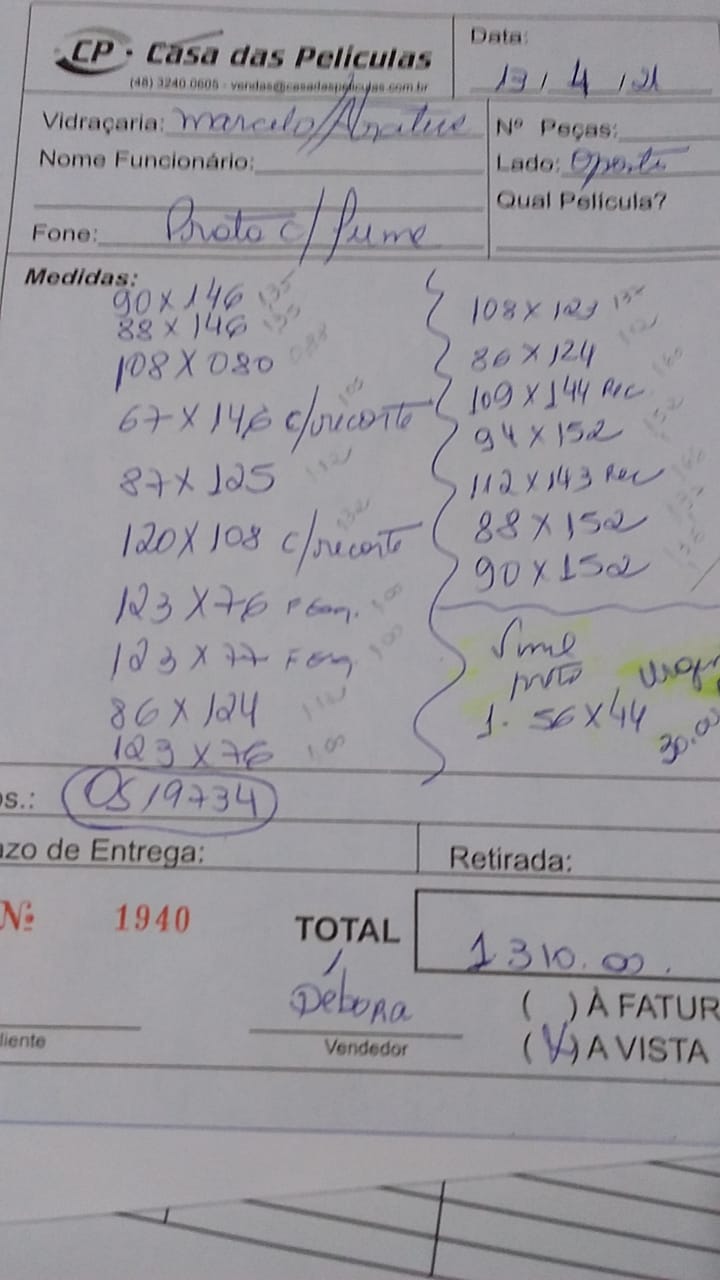 CP · Casa das Películas
(48) 3240.0605 - vendas@casadaspeliculas.com.br
Data:
13 / 4 / 21
Vidraçaria: Marcelo/
Nº Peças:
Nome Funcionário:
Lado:
Qual Película?
Fone: Proto c/ fume
Medidas:
90 X 146 135
88 X 146 135
108 X 080 088
67 X 146 c/recorte 100
87 X 125 112
120 X 108 c/recorte 132
123 X 76 100
123 X 77 100
86 X 124 112
123 X 76 100
108 X 123 132
86 X 124 112
109 X 144 Rec 160
94 X 152 152
112 X 143 Rec 160
88 X 152
90 X 152
fume
proto
1. 56 X 44
30.00
os.: OS 19734
azo de Entrega:
Retirada:
Nº 1940
TOTAL 1 310.00.
Débora
( ) À FATUR
liente
Vendedor
(V) A VISTA